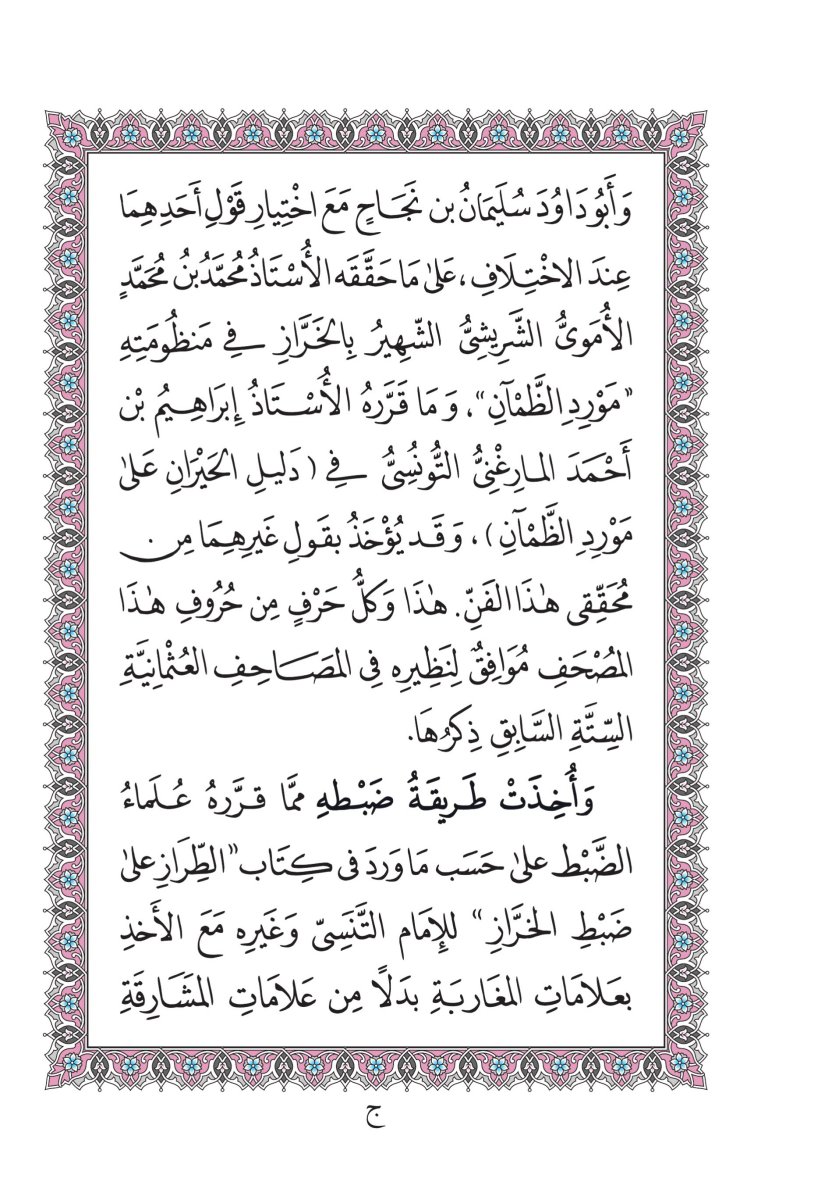 وَأَبُو دَاوُدَ سُلَيْمَانُ بن نَجَـاحٍ مَعَ اخْتِيارِ قَوْلِ أَحَدِهِمَا
عِندَ الاخْتِـلَافِ، عَلىٰ مَا حَقَّقَه الأُسْتَاذُ مُحَمَّدُ بنُ مُحَمَّدٍ
الأُمَوىُّ الشَّرِيشِىُّ الشَّهِيرُ بِالخَرَّازِ فِے مَنظُومَتِهِ
”مَوْرِدِ الظَّمْآنِ“، وَمَا قَرَّرَهُ الأُسْـتَاذُ إِبرَاهِـيمُ بْن
أَحْـمَدَ المـارِغْنِىُّ التُّونُسِىُّ فِے (دَلِيلِ الحَيْرَانِ عَلىٰ
مَوْرِدِ الظَّمْآنِ)، وَقَـد يُؤْخَذُ بقَولِ غَيرِهِـمَا مِن
مُحَقِّقِى هٰذَا الفَنِّ. هٰذَا وَكلُّ حَرْفٍ مِن حُرُوفِ هٰذَا
المُصْحَفِ مُوَافِقٌ لِنَظِيرِه فِى المصَـاحِـفِ العُثْمٰانِيَّةِ
السِّتَّةِ السَّابِقِ ذِكرُهَا.
وَأُخِذَتْ طَـرِيقَةُ ضَبْـطهِ مِمَّا قـرَّرَهُ عُـلَماءُ
الضَّبْط علىٰ حَسَب مَا وَرَدَ فى كِتَاب ”الطِّرَازِ علىٰ
ضَبْطِ الخَرَّازِ“ للإِمَام التَّنَسِىّ وَغَيرِه مَعَ الأَخذِ
بعَـلامَاتِ المغَـاربَـةِ بدَلًا مِن عَلامَاتِ المشَـارِقَةِ
ج